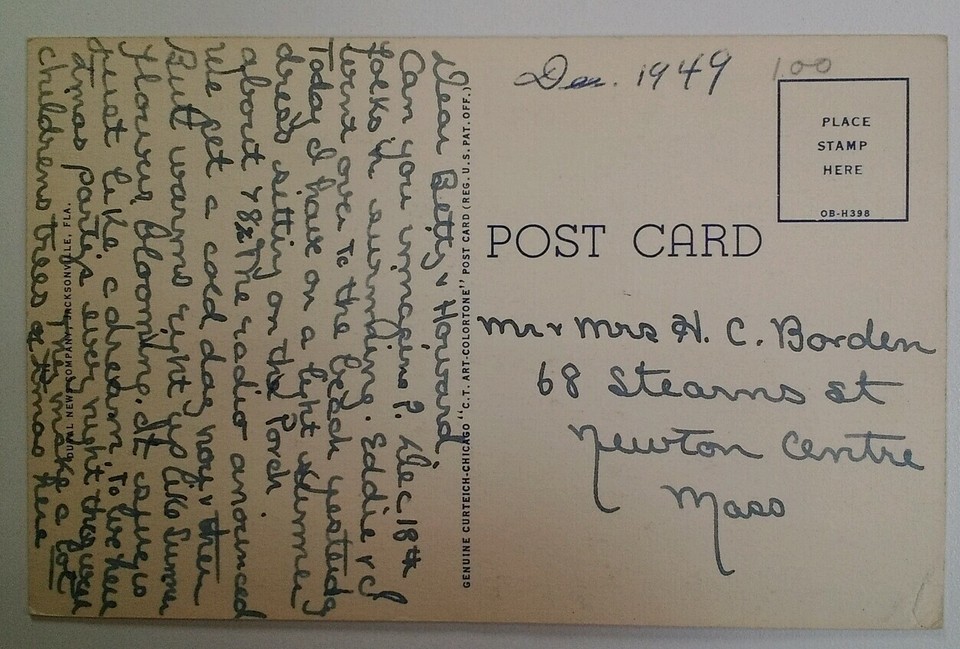 Dec. 1949
1.00
PLACE
STAMP
HERE
OB-H398
POST CARD
Mr & Mrs H. C. Borden
68 Stearns st
Newton Centre
Mass
GENUINE CURTEICH-CHICAGO "C.T. ART-COLORTONE" POST CARD (REG. U.S. PAT. OFF.)
Dear Betty & Howard
Can you imagine? Dec 18th
folks in swimming. Eddie & I
went over to the beach yesterday
Today I have on a light summer
dress sitting on the Porch
about 82° The radio anounced
We get a cold day now & then
But warms right up like Summer
flowers Blooming. It
just like a dream. To live here
Xmas partys every night
They make a lot
childrens trees Xmas here
DUVAL NEWS COMPANY, JACKSONVILLE, FLA.